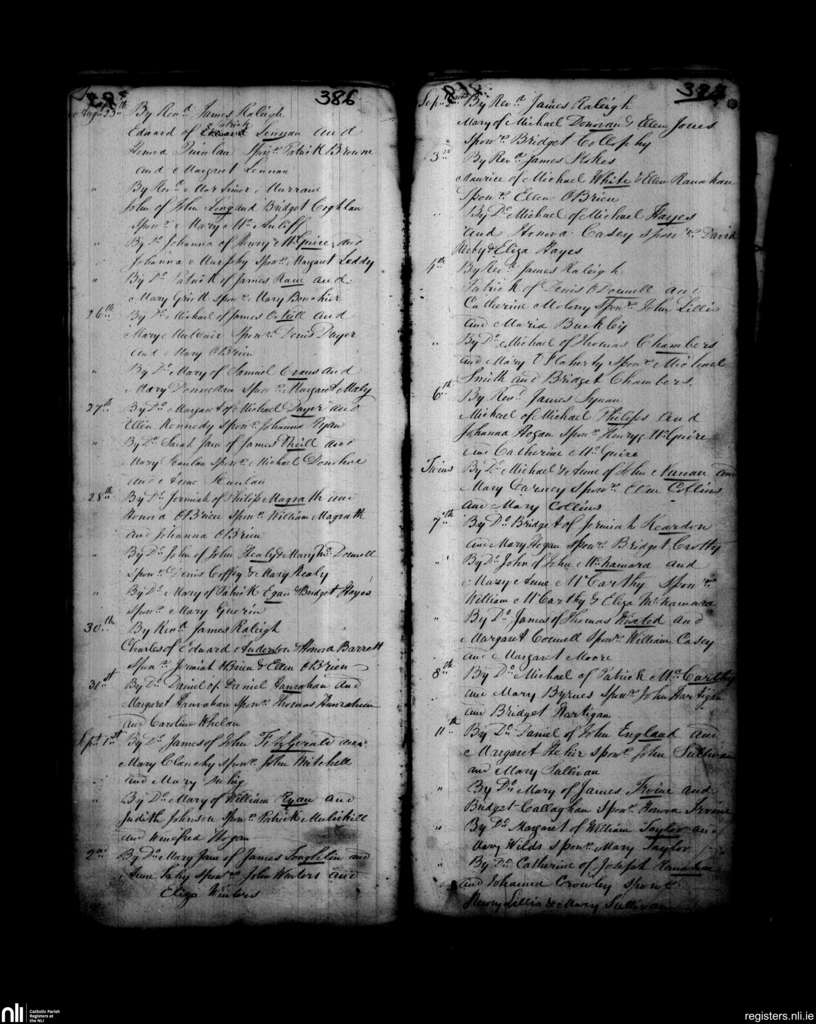 386
Augt 25th By Revd James Raleigh
Patrick
Edward of Edward Lennan and
Honora Quinlan Sponrs Patrick Browne
and Margaret Lennan
" By Revd Mortimer
John of John Long and Bridget Coghlan
Sponr Mary McAuliff
" By Do Johanna of Henry McGuire and
Johanna Murphy Sponr Margaret Leddy
" By Do Patrick of James and
Mary Sponr Mary Bouchier
26th By Do Michael of James and
Mary Sponrs Denis Dwyer
and Mary OBrien
" By Do Mary of Samuel Evans and
Mary Sponr Margaret
27th By Do Margaret of Michael Dwyer and
Ellen Kennedy Sponr Johanna Ryan
" By Do Sarah Jane of James and
Mary Hanlan Sponrs Michael Donohue
and Anne Hanlan
28th By Do Jermiah of Philip Magrath and
Honora OBrien Sponrs William Magrath
and Johanna OBrien
" By Do John of John Healy & Mary McDonnell
Sponrs Denis Coffey & Mary Healy
" By Do Mary of Patrick Egan & Bridget Hayes
Sponr Mary Guerin
30th By Revd James Raleigh
Charles of Edward Anderson & Honora Barrett
Sponrs Jermiah OBrien & Ellen OBrien
31st By Do Daniel of Daniel Hanrahan and
Margaret Hanrahan Sponrs Thomas Hanrahan
and Caroline Whelan
Sept 1st By Do James of John FitzGerald and
Mary Clanchy Sponrs John Mitchell
and Mary
" By Do Mary of William Ryan and
Judith Johnson Sponrs Patrick
and Winefred Hogan
2nd By Do Mary Jane of James Loughlin and
Anne Sponrs John Winters and
Eliza Winters
Sept By Revd James Raleigh
Mary of Michael Donovan & Ellen Jones
Sponr Bridget Collopy
3rd By Revd James Stokes
Maurice of Michael White & Ellen Ranahan
Sponr Ellen OBrien
" By Do Michael of Michael Hayes
and Honora Casey Sponrs David
& Eliza Hayes
4th By Revd James Raleigh
Patrick of Denis ODonnell and
Catherine Molony Sponrs John Lillis
and Maria Buckley
" By Do Michael of Thomas Chambers
and Mary Flaherty Sponrs Michael
Smith and Bridget Chambers.
6th By Revd James Synan
Michael of Michael Phelips and
Johanna Hogan Sponrs Henry McGuire
and Catherine McGuire
Twins By Do Michael & Anne of John and
Mary Carney Sponrs Ellen Collins
and Mary Collins
7th By Do Bridget of Jermiah Reardon
and Mary Hogan Sponr Bridget Crotty
" By Do John of John McNamara and
Mary Anne McCarthy Sponrs
William McCarthy & Eliza McNamara
" By Do James of Thomas and
Margaret Connell Sponrs William Casey
and Margaret Moore
8th By Do Michael of Patrick McCarthy
and Mary Byrnes Sponrs John Hartigan
and Bridget Hartigan
11th By Do Daniel of John England and
Margaret Sponrs John Sullivan
and Mary Sullivan
" By Do Mary of James Irvine and
Bridget Callaghan Sponr Honora Irvine
" By Do Margaret of William Taylor and
Mary Wilds Sponr Mary Taylor
" By Do Catherine of Joseph
and Johanna Crowley Sponrs
Henry Lillis & Mary Sullivan
nli
Catholic Parish
Registers at
the NLI
registers.nli.ie